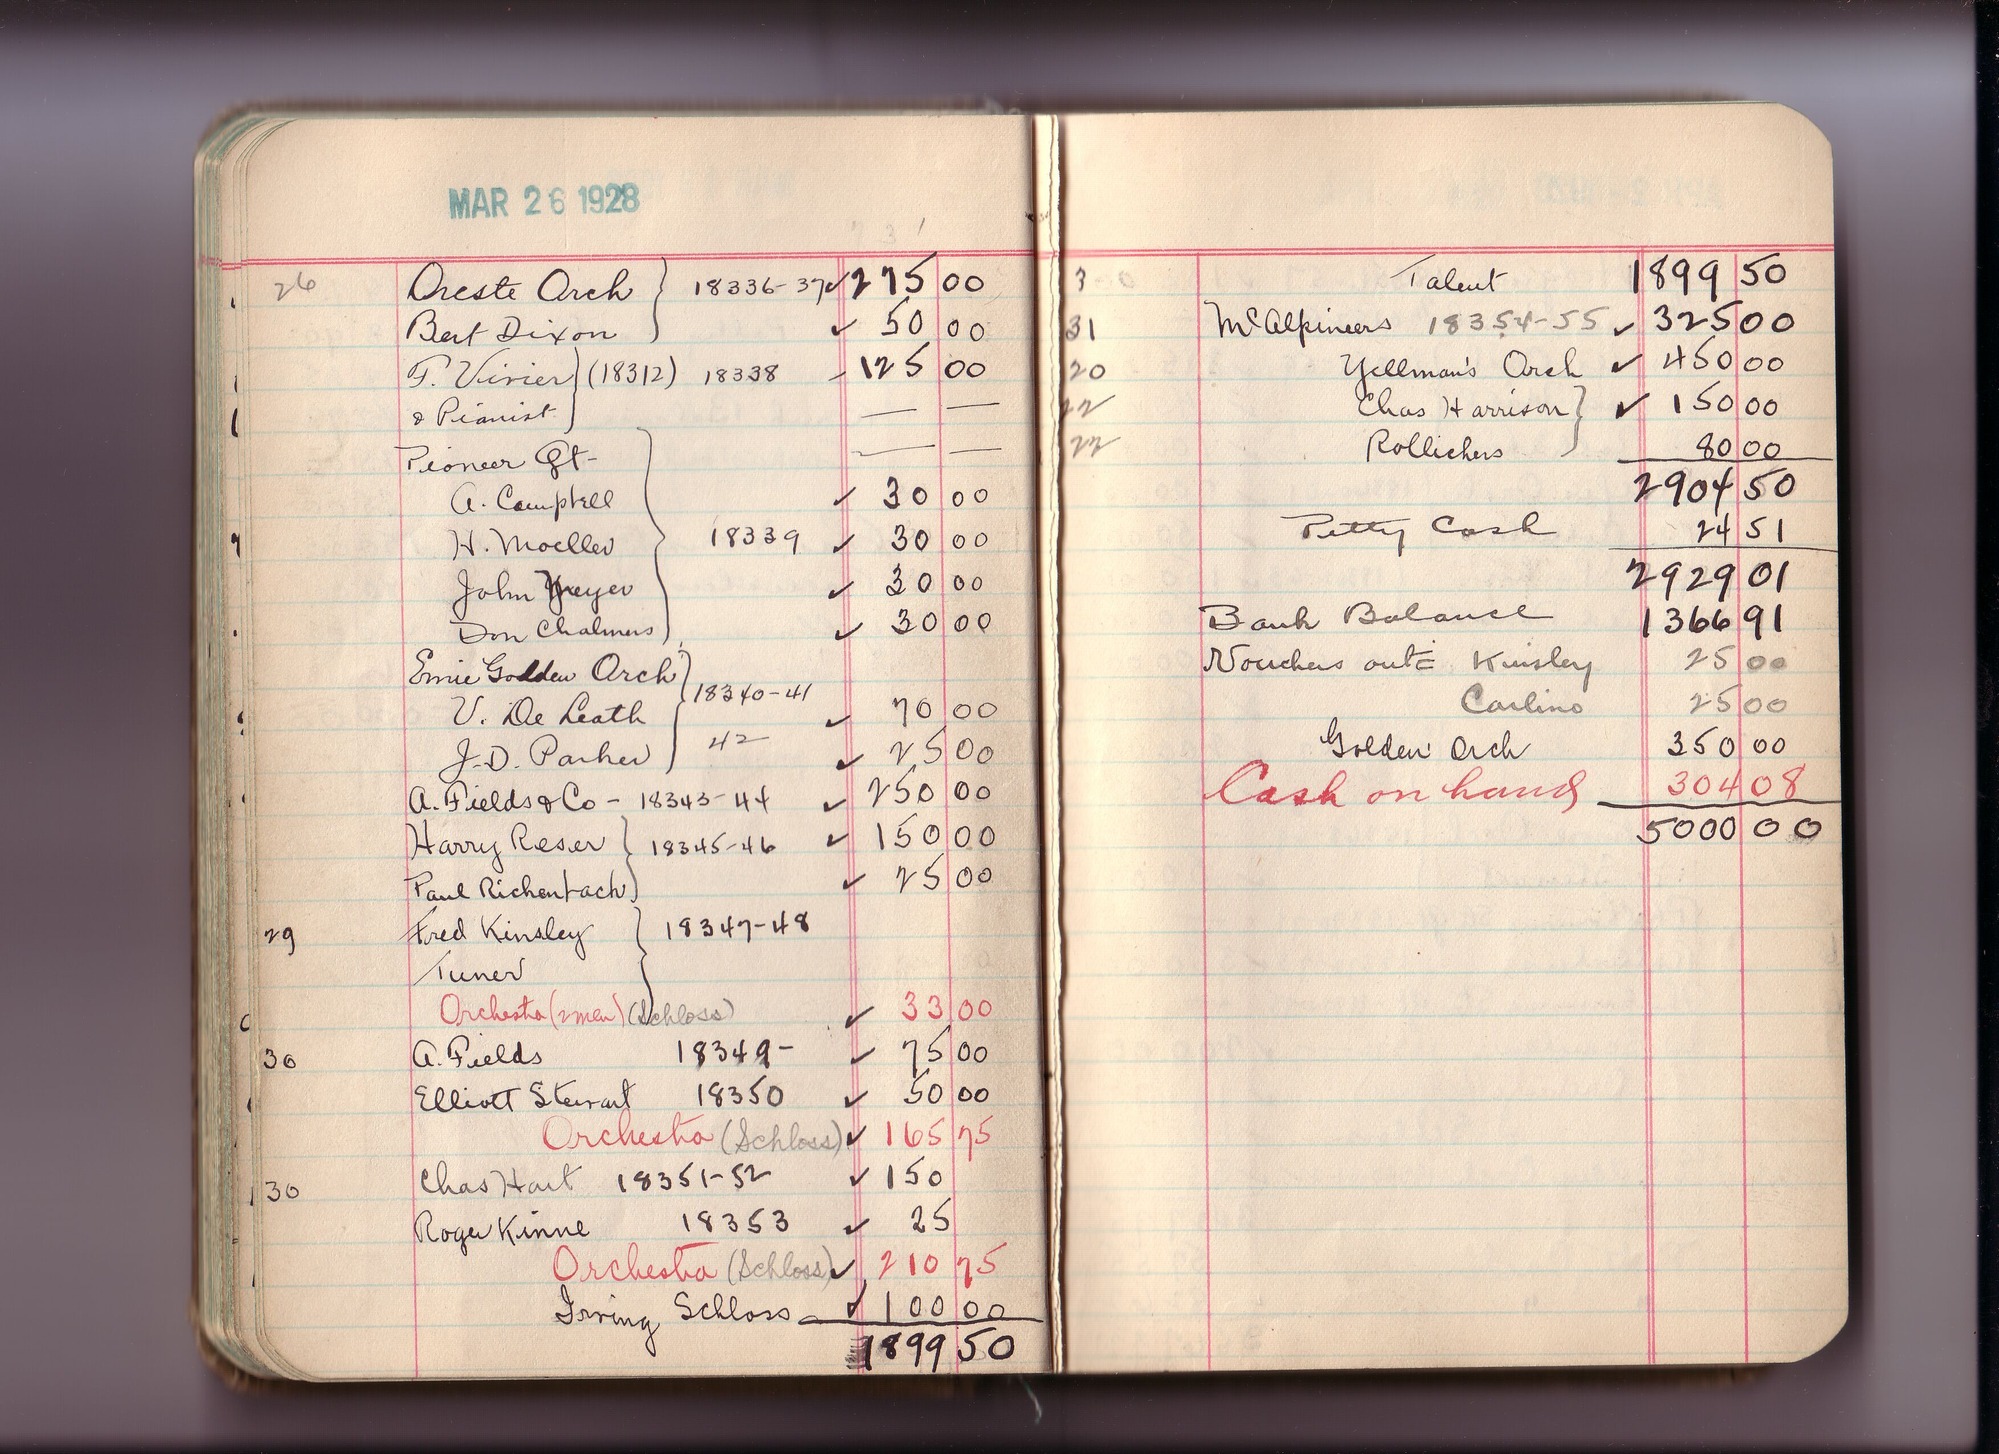 MAR 26 1928
26 Oreste Orch } 18336-37 ✓ 275 00
Bert Dixon ✓ 50 00
F. Vivier } (18312) 18338 ✓ 125 00
& Pianist — —
Pioneer Qt- — —
A. Campbell ✓ 30 00
H. Moeller 18339 ✓ 30 00
John Meyer ✓ 30 00
Don Chalmers ✓ 30 00
Ernie Golden Orch } 18340-41
V. De Leath ✓ 70 00
J.D. Parker 42 ✓ 25 00
A. Fields & Co - 18343-44 ✓ 250 00
Harry Reser } 18345-46 ✓ 150 00
Paul Richenbach ✓ 25 00
29 Fred Kinsley } 18347-48
Tuner
Orchestra (2 men) (Schloss) ✓ 33 00
30 A. Fields 18349- ✓ 75 00
Elliott Stewart 18350 ✓ 50 00
Orchestra (Schloss) ✓ 165 75
30 Chas Hart 18351-52 ✓ 150
Roger Kinne 18353 ✓ 25
Orchestra (Schloss) ✓ 210 75
Irving Schloss ✓ 100 00
1899 50
3 Talent 1899 50
31 McAlpineers 18354-55 ✓ 325 00
20 Yellman's Orch ✓ 450 00
22 Chas Harrison } ✓ 150 00
22 Rollickers 80 00
2904 50
Petty Cash 24 51
2929 01
Bank Balance 1366 91
Vouchers out = Kinsley 25 00
Carlino 25 00
Golden Orch 350 00
Cash on hand 304 08
5000 00